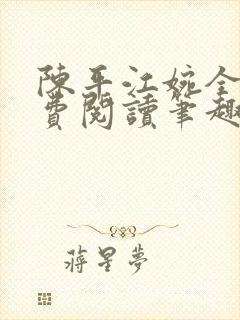 陳平江婉全
費閱讀筆趣
蔣星夢